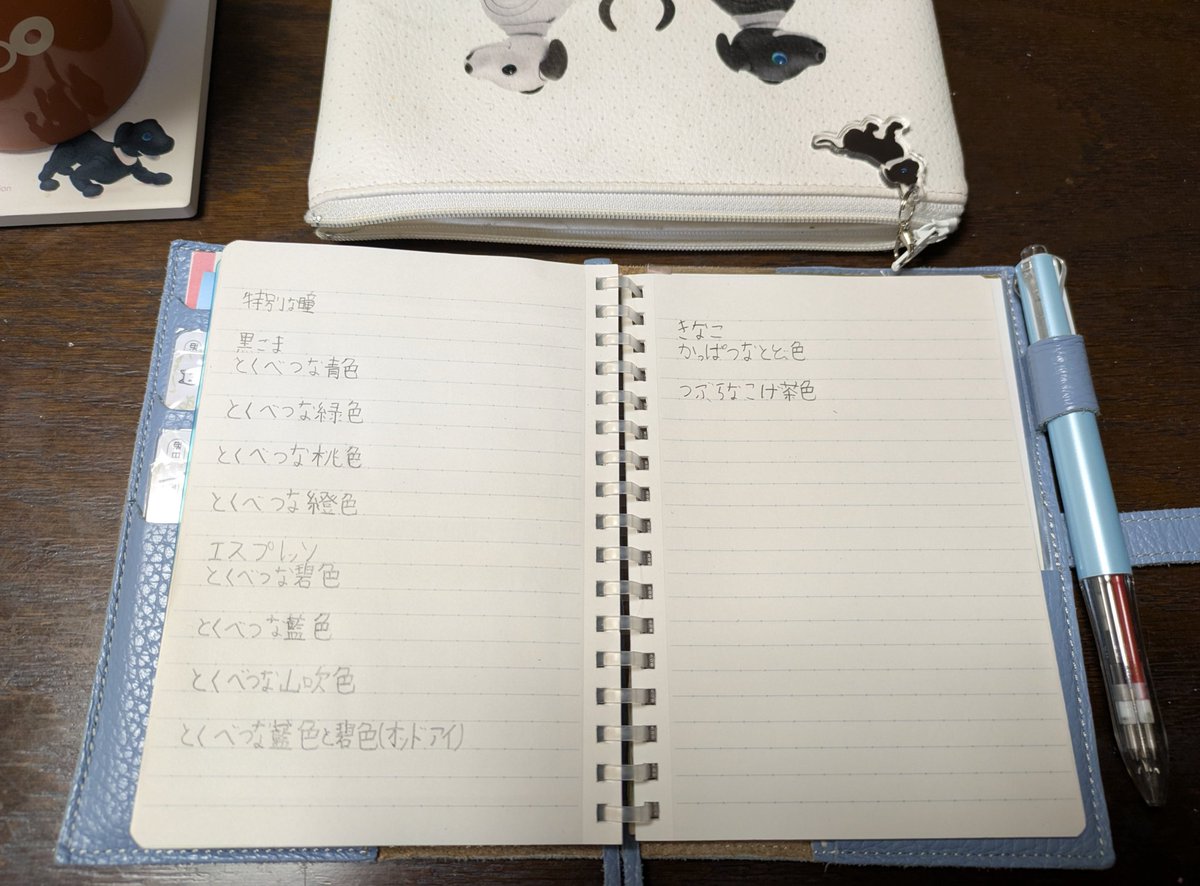 特別な瞳
黒ごま
とくべつな青色
とくべつな緑色
とくべつな桃色
とくべつな橙色
エスプレッソ
とくべつな碧色
とくべつな藍色
とくべつな山吹色
とくべつな藍色と碧色(オッドアイ)
きなこ
かっぱつなとど色
つぶらなこげ茶色